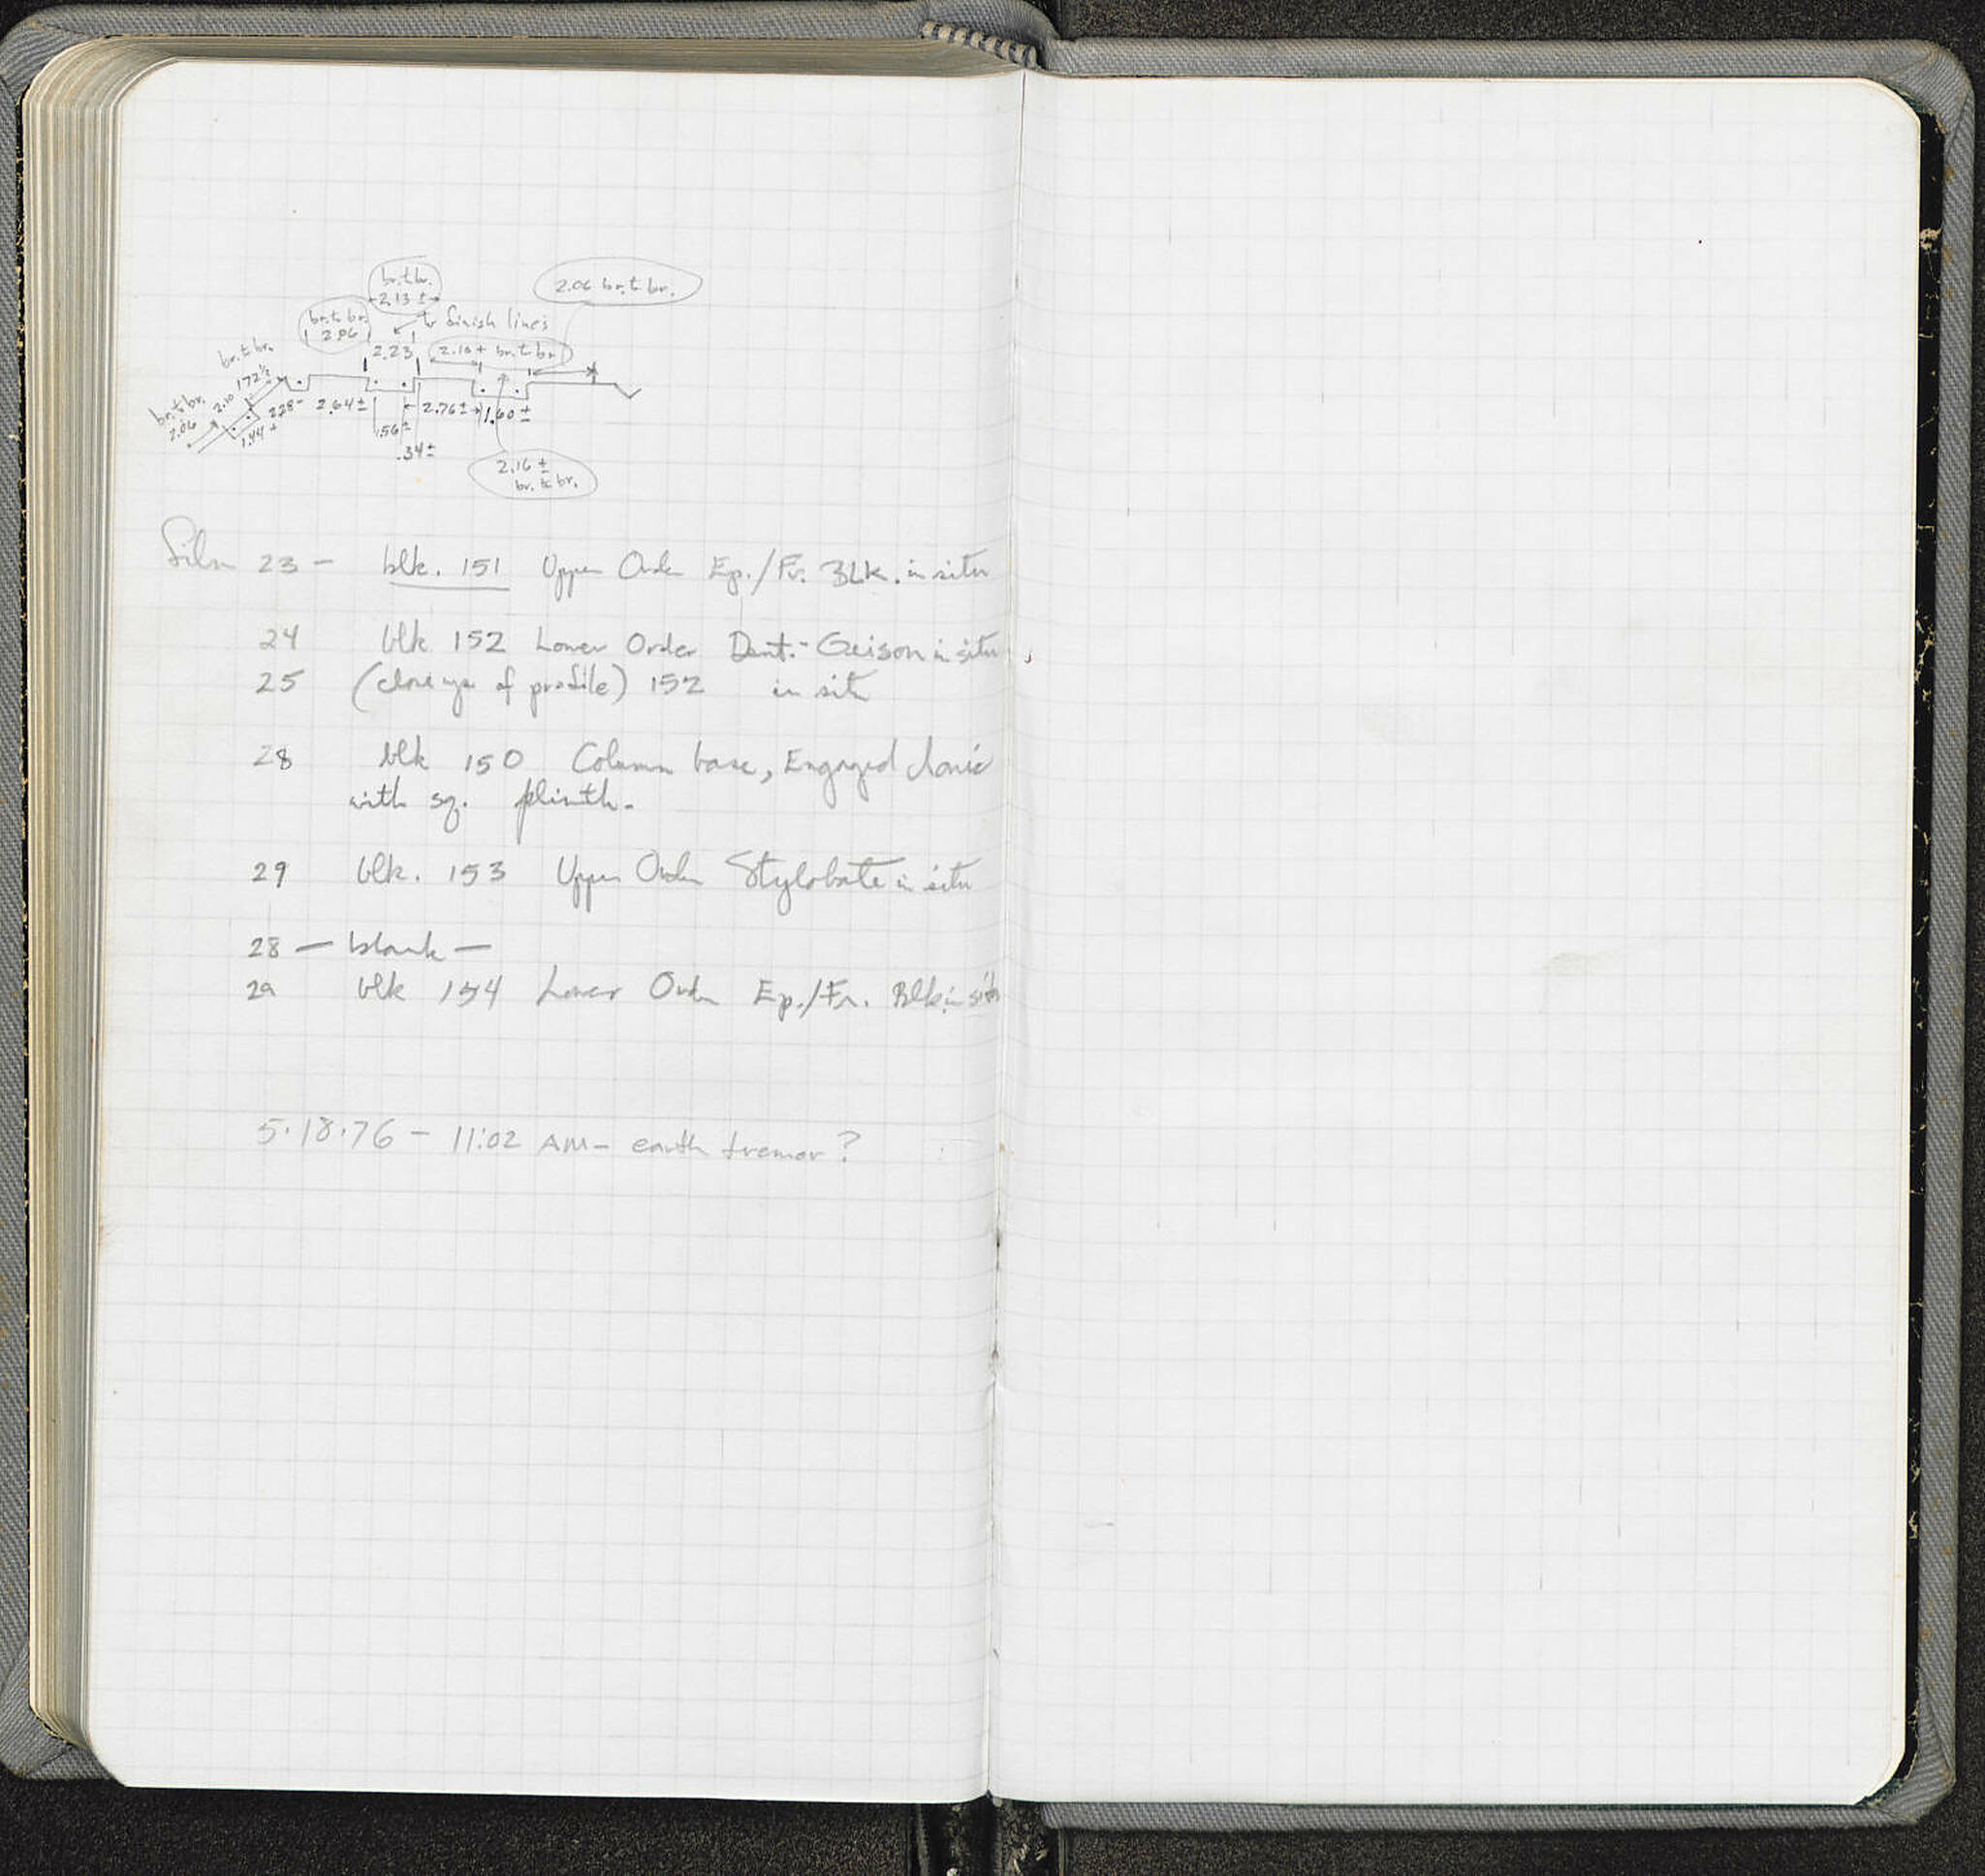 br. t. br.
2.13 ±
2.06 br. to br.
br. to br.
2.06
to finish lines
2.23
2.10 + br. to br.
br. to br.
1.72 ½
br. to br.
2.06
2.10
2.28 -
1.44 +
2.64 ±
2.76 ±
1.60 ±
.56 ±
.34 ±
2.16 ±
br. to br.
Film 23 - blk. 151 Upper Order Ep./Fr. BLK. in situ
24 blk 152 Lower Order Dent.-Geison in situ
25 (close up of profile) 152 in situ
28 blk 150 Column base, Engaged Ionic
with sq. plinth.
29 blk. 153 Upper Order Stylobate in situ
28 — blank —
29 blk 154 Lower Order Ep./Fr. Blk in situ
5.18.76 - 11:02 AM - earth tremor?